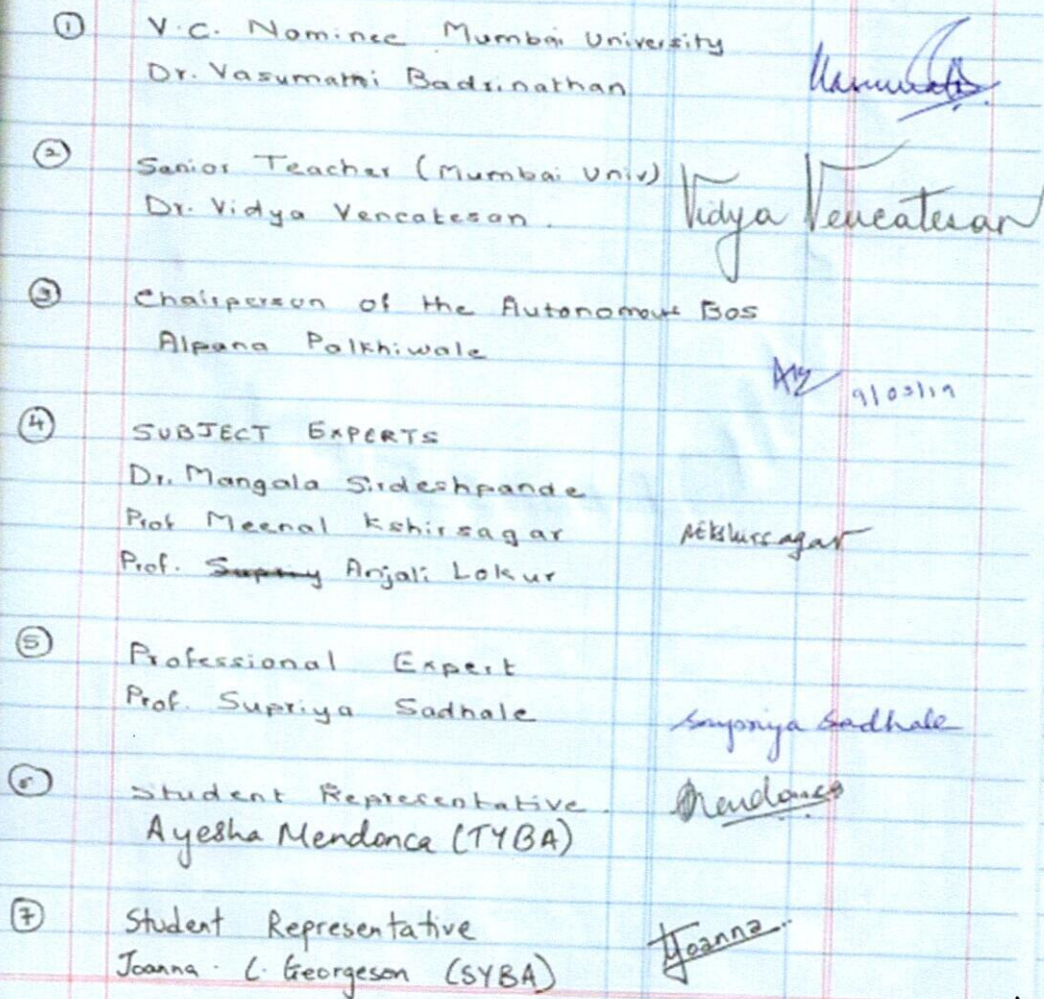 ① V.C. Nominee Mumbai University
Dr. Vasumathi Badrinathan
② Senior Teacher (Mumbai Univ) Vidya Vencatesan
Dr. Vidya Vencatesan.
③ Chairperson of the Autonomous BOS
Alpana Palkhiwale
9/03/19
④ SUBJECT EXPERTS
Dr. Mangala Sirdeshpande
Prof Meenal Kshirsagar MKshirsagar
Prof. Anjali Lokur
⑤ Professional Expert
Prof. Supriya Sadhale Supriya Sadhale
⑥ Student Representative. Mendonca
Ayesha Mendonca (TYBA)
⑦ Student Representative Joanna
Joanna. L. Georgeson (SYBA)